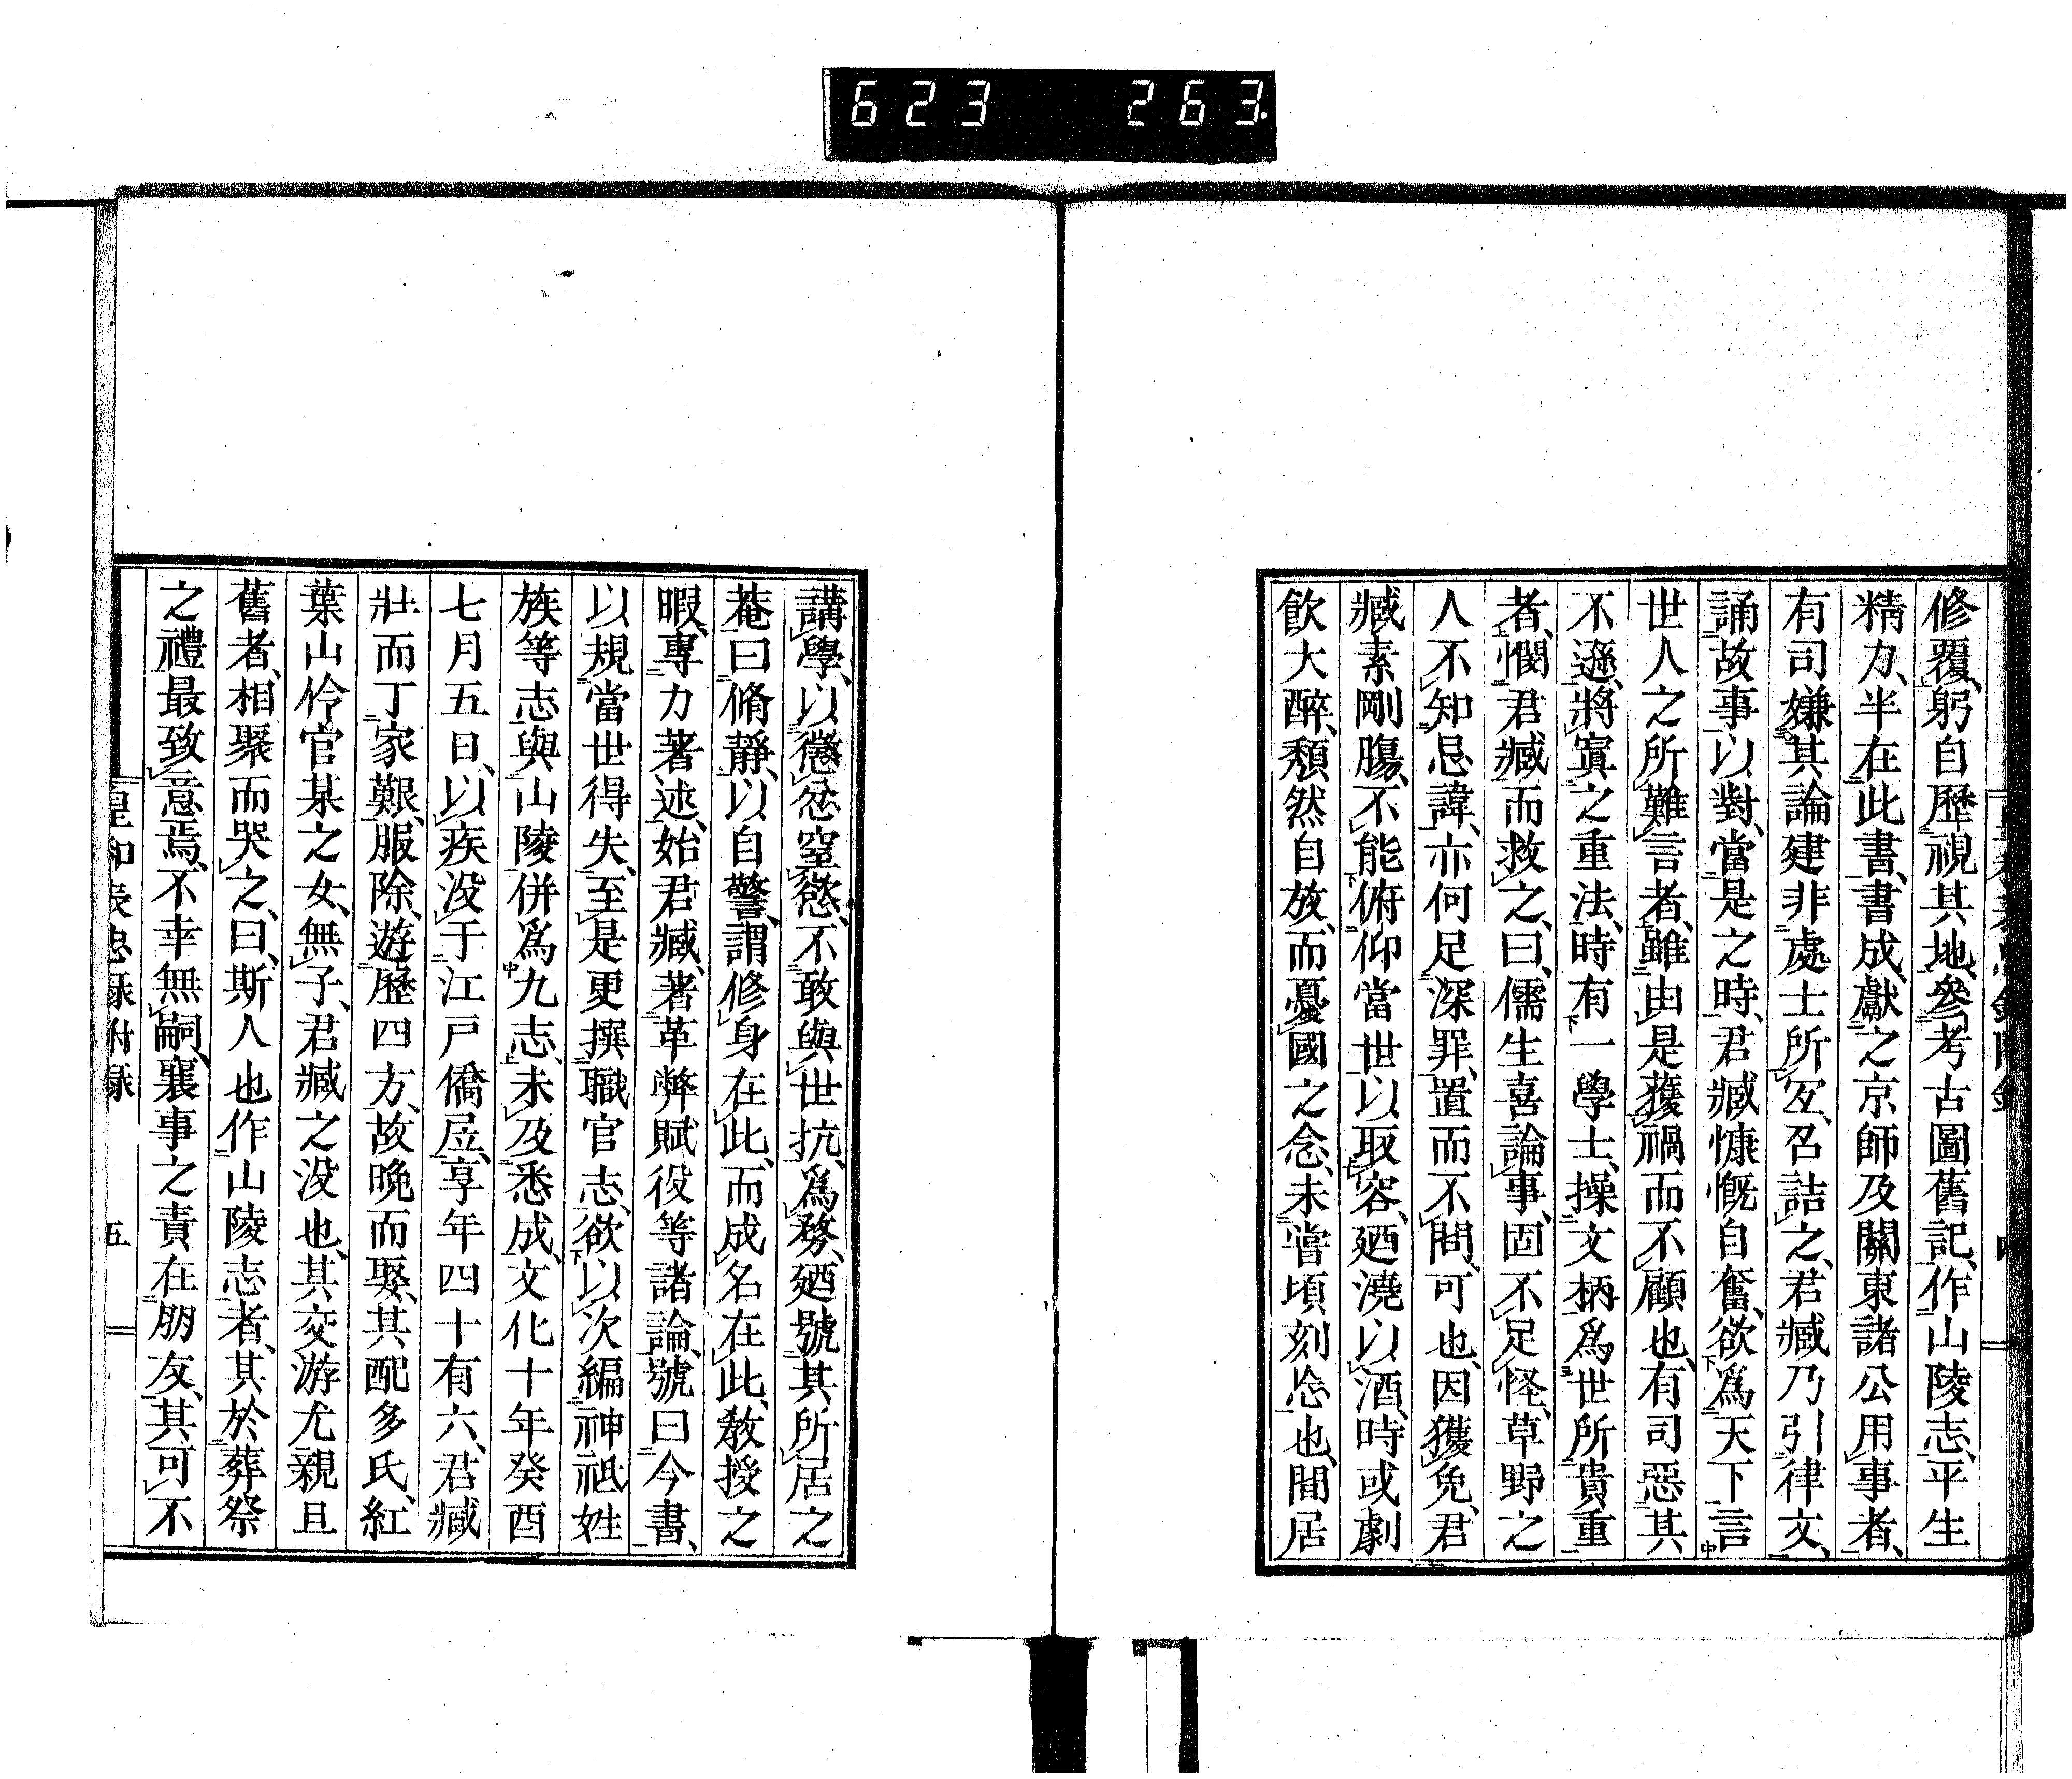 623 263.
修覆、躬自歷視其地、參考古圖舊記、作山陵志、平生
精力、半在此書、書成、獻之京師及關東諸公用事者、
有司嫌其論建非處士所宜、召詰之、君臧乃引律文、
誦故事以對、當是之時、君臧慷慨自奮、欲爲天下言
世人之所難言者、雖由是獲禍而不顧也、有司惡其
不遜、將寘之重法、時有一學士、操文柄爲世所貴重
者、憫君臧而救之、曰、儒生喜論事、固不足怪、草野之
人不知忌諱、亦何足深罪、置而不問、可也、因獲免、君
臧素剛腸、不能俯仰當世以取容、廼澆以酒、時或劇
飲大醉、頽然自放、而憂國之念、未嘗頃刻忘也、間居
講學、以懲忿窒慾、不敢與世抗爲務、廼號其所居之
菴曰脩靜、以自警、謂修身在此、而成名在此、教授之
暇、專力著述、始君臧、著革弊賦役等諸論、號曰今書、
以規當世得失、至是更撰職官志、欲以次編神祇姓
族等志與山陵併爲九志、未及悉成、文化十年癸酉
七月五日、以疾没于江戸僑居、享年四十有六、君臧
壯而丁家艱、服除、遊歷四方、故晩而娶、其配多氏、紅
葉山伶官某之女、無子、君臧之没也、其交游尤親且
舊者、相聚而哭之、曰、斯人也作山陵志者、其於葬祭
之禮最致意焉、不幸無嗣、襄事之責在朋友、其可不
皇和表忠録附録 五